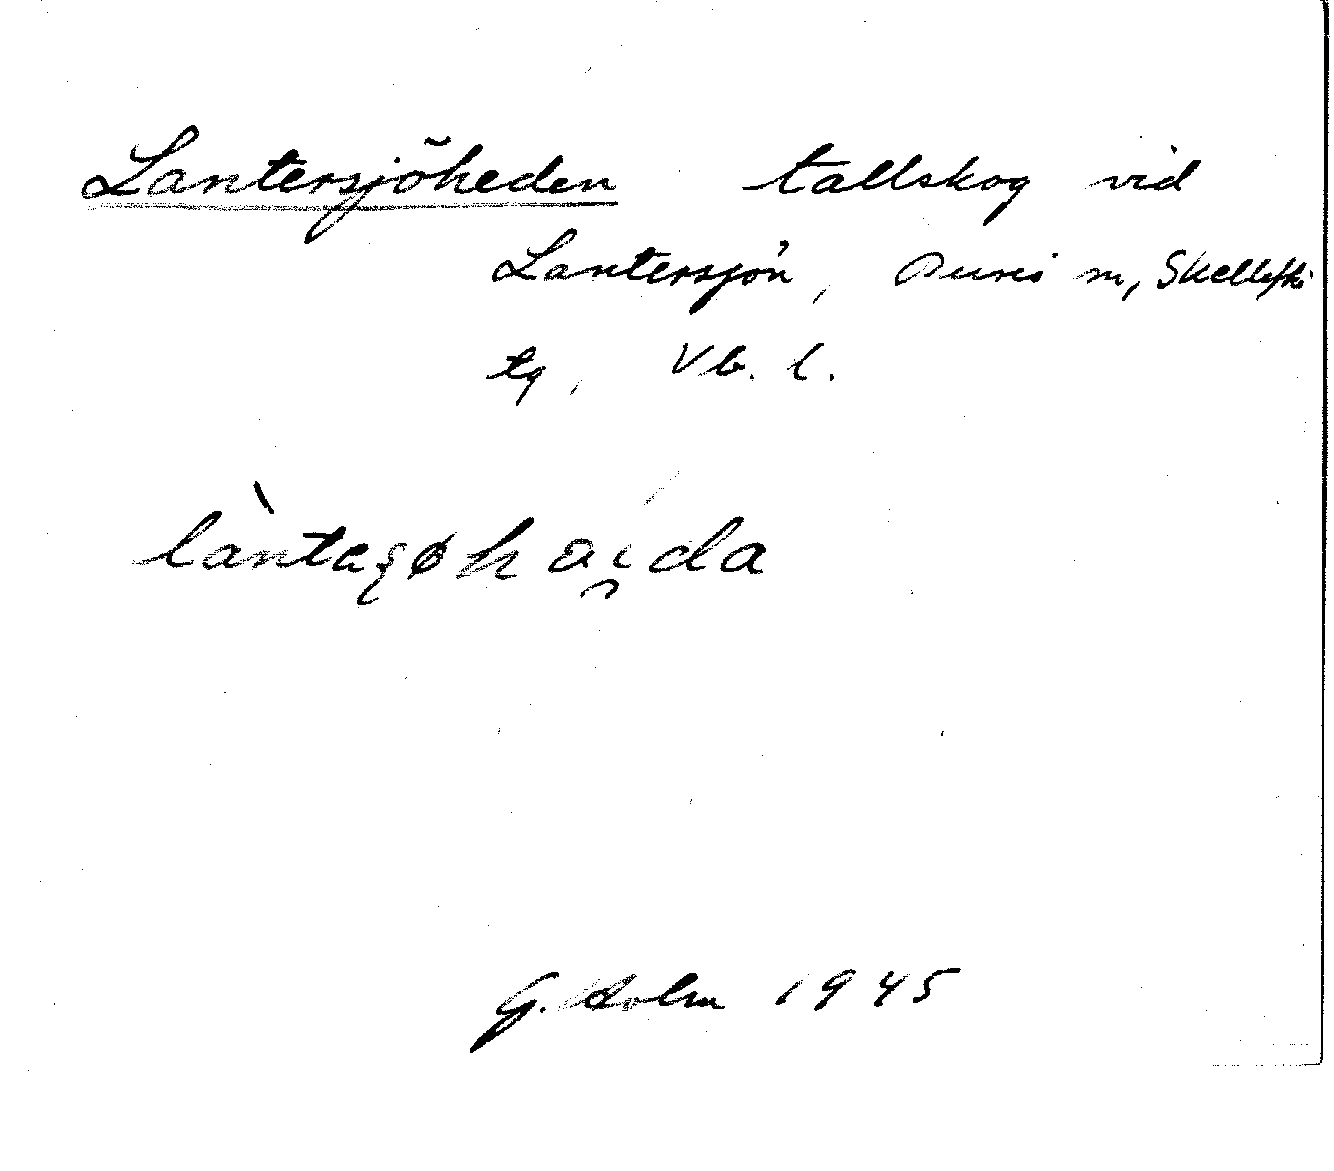 Lantersjöheden tallskog vid
Lantersjön, Bureå m, Skellefte
tg, Vb. l.
lànteʂøhai̯da
G. Holm 1945